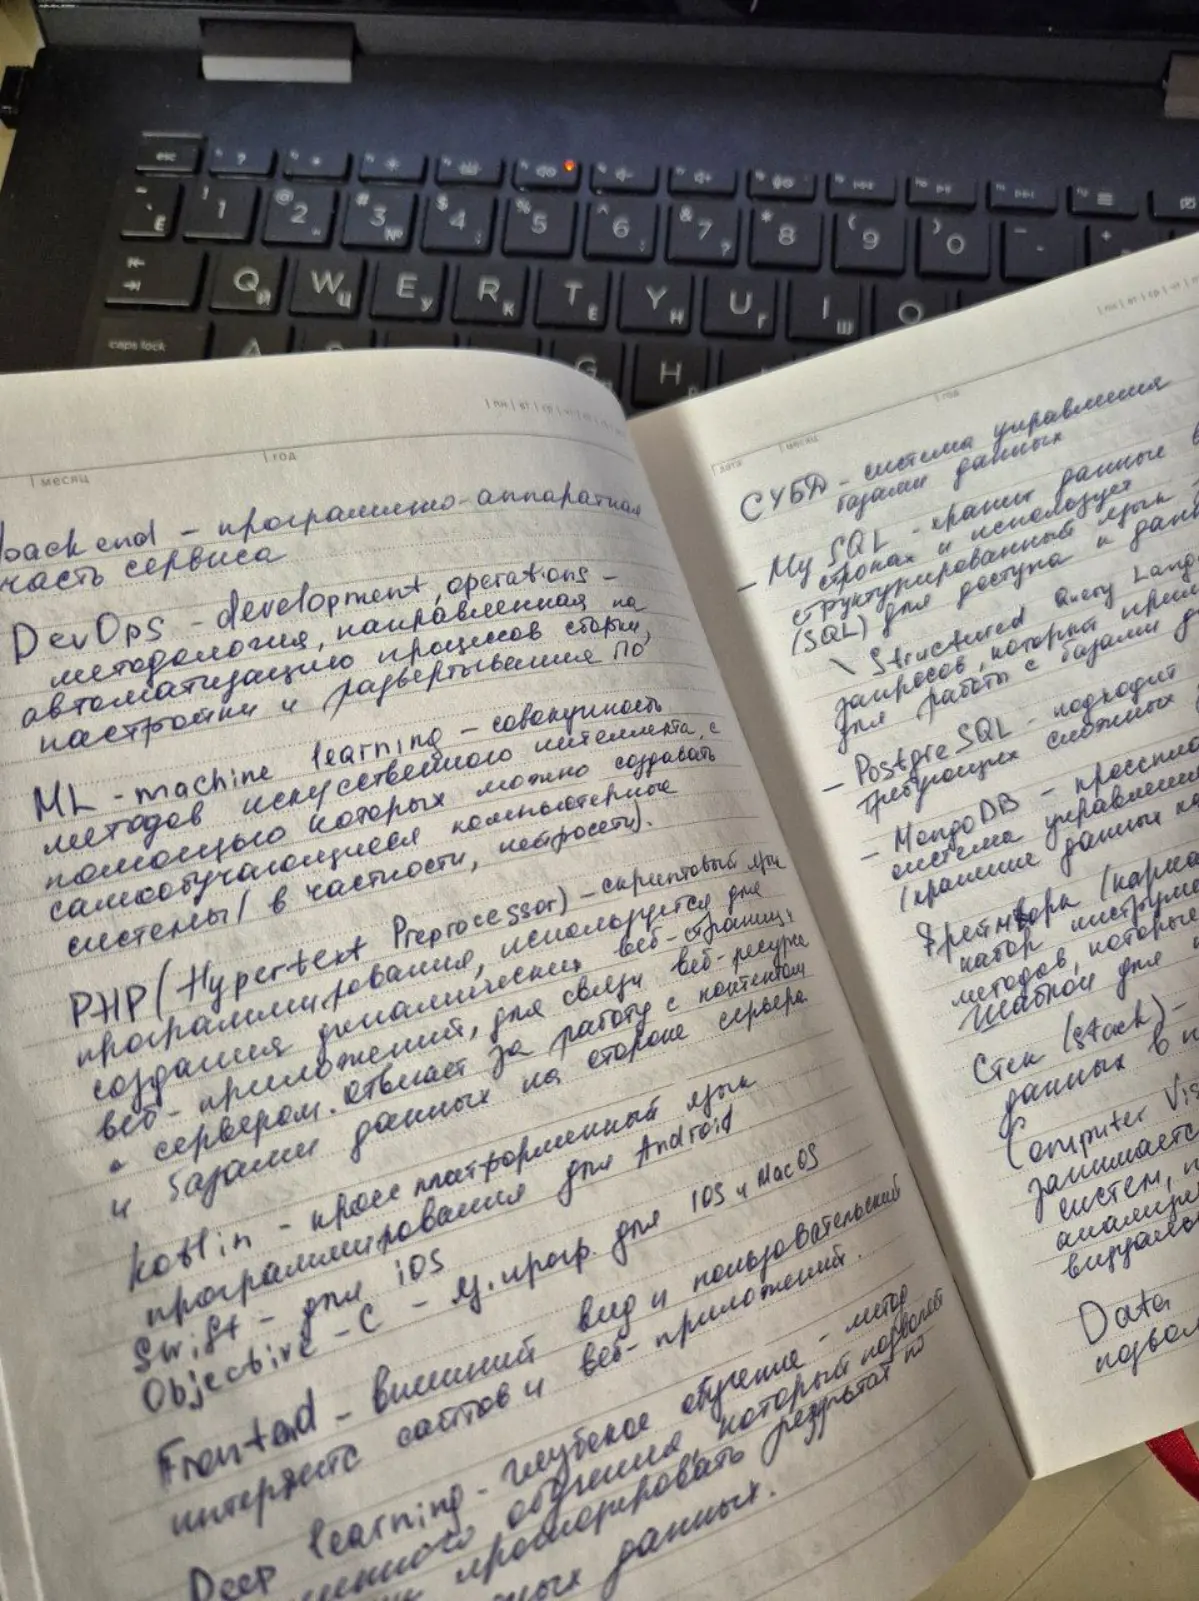 esc
? 
! 1
@ 2 "
# 3 №
$ 4 ;
% 5
^ 6 :
& 7 ?
* 8
( 9
) 0
Ё
Q Й
W Ц
E У
R К
T Е
Y Н
U Г
I Ш
O
caps lock
G
H
месяц
год
back end - программно-аппаратная
часть сервиса
DevOps - development, operations -
методология, направленная на
автоматизацию процессов сборки,
настройки и развертывания ПО
ML - machine learning - совокупность
методов искусственного интеллекта, с
помощью которых можно создавать
самообучающиеся компьютерные
системы (в частности, нейросети).
PHP (Hypertext Preprocessor) - скриптовый язык
программирования, используется для
создания динамических веб-страниц и
веб-приложений, для связи веб-ресурса
с сервером. Отвечает за работу с контентом
и базами данных на стороне сервера.
Kotlin - кросс платформенный язык
программирования для Android
Swift - для iOS
Objective-C - яз. прогр. для iOS и MacOS
Frontend - внешний вид и пользовательский
интерфейс сайтов и веб-приложений.
Deep learning - глубокое обучение - метод
обучения, который позволяет
прогнозировать результат по
данных.
дата
месяц
год
СУБД - система управления
базами данных
- My SQL - хранит данные в
строках и использует
структурированный язык
(SQL) для доступа к
\ Structured Query Lang
запросов, который
для работы с базами
- PostgreSQL - подходит
требующих сложных
- MongoDB -
система
(хранение данных
Фреймворк
набор
методов, которые
шаблон для
Стек (stack) -
данных в
Computer Vis
занимается
систем,
Data